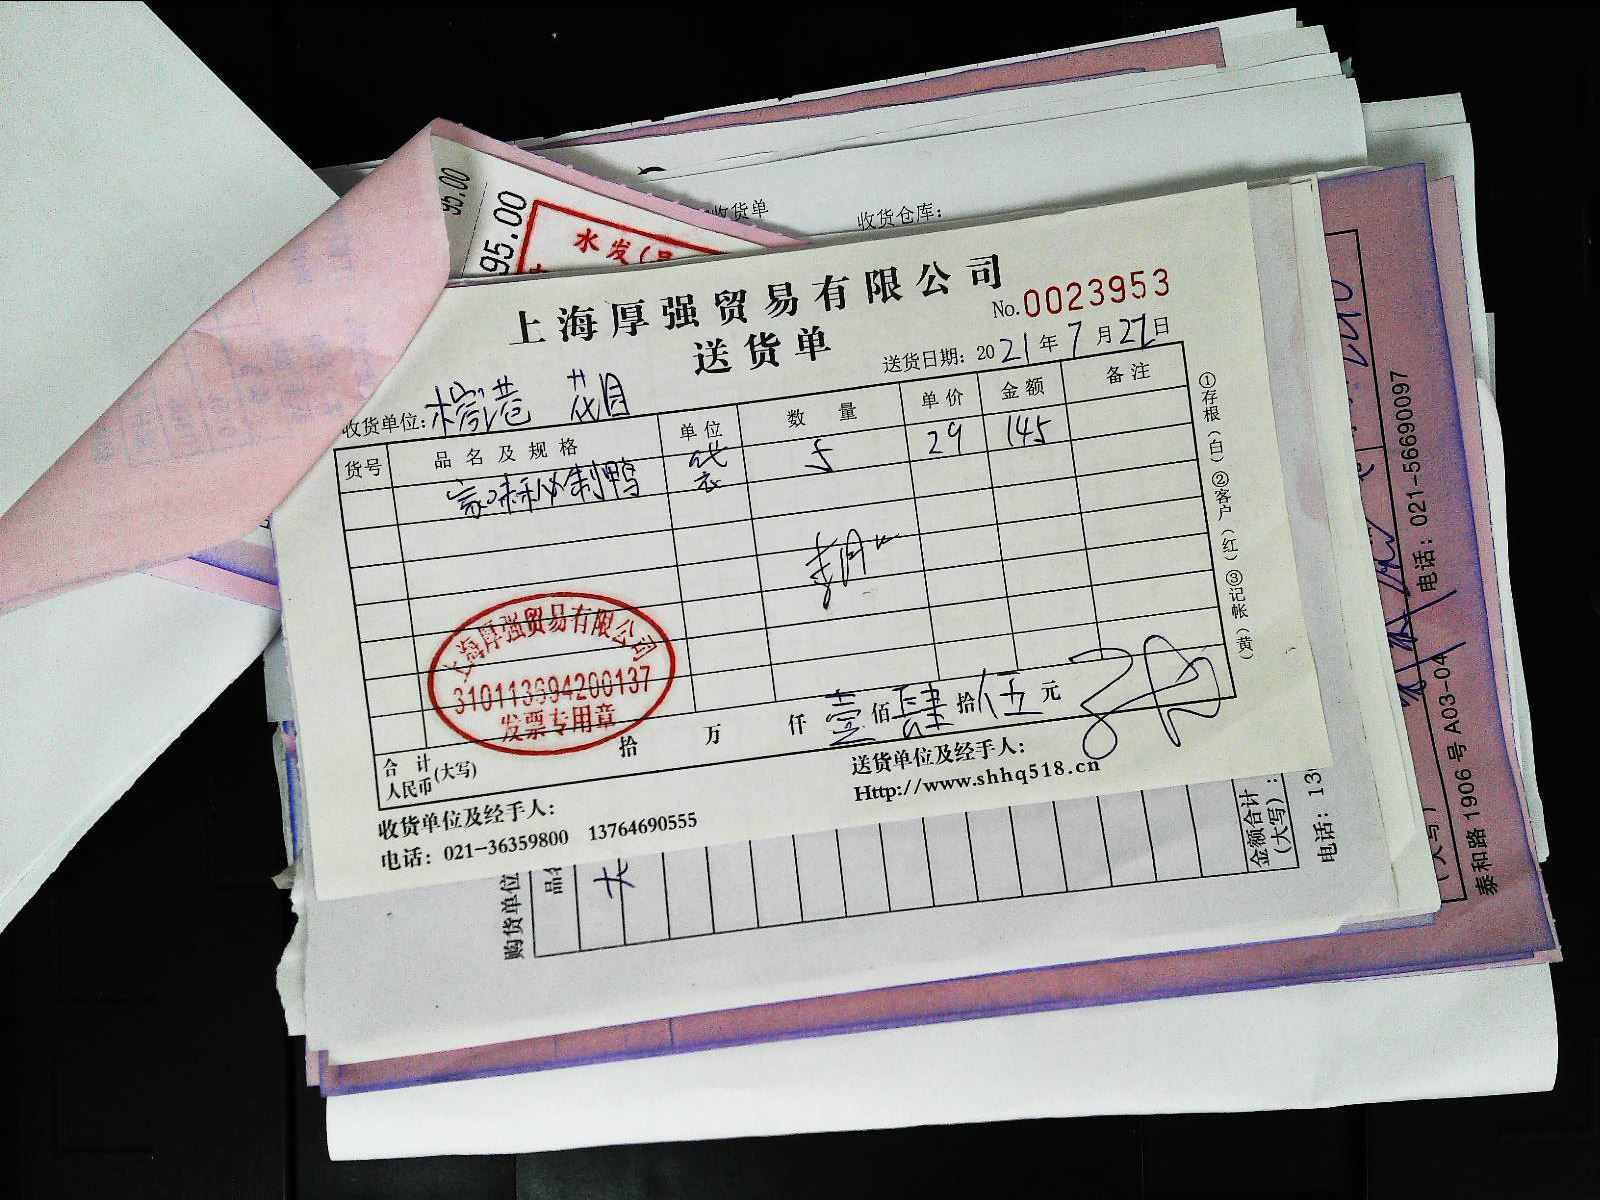 95.00
95.00
水发(
收货单
收货仓库:
上海厚强贸易有限公司
No.0023953
送货单
送货日期: 2021年7月27日
收货单位:
货号 品名及规格 单位 数量 单价 金额 备注
家味秘制鸭 袋 5 29 145
合计
人民币(大写) 拾 万 仟 壹佰肆拾伍元
上海厚强贸易有限公司
310113694200137
发票专用章
收货单位及经手人:
送货单位及经手人:
Http://www.shhq518.cn
电话: 021-36359800 13764690555
①存根(白)②客户(红)③记帐(黄)
购货单位
金额合计
(大写):
电话: 13
(大写)
泰和路1906号A03-04
电话: 021-56690097